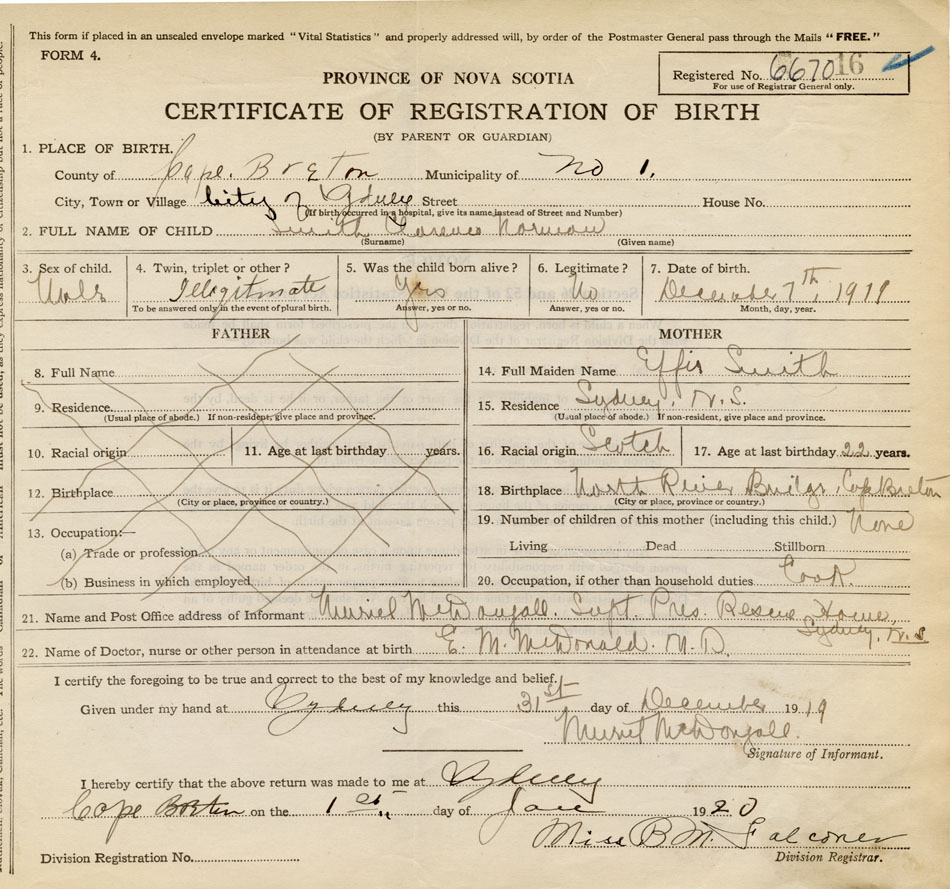 This form if mailed in an unsealed envelope marked "Vital Statistics" and properly addressed will, by order of the Postmaster General pass through the Mails "FREE."
FORM 4.
PROVINCE OF NOVA SCOTIA
Registered No. 6670 16
For use of Registrar General only.
CERTIFICATE OF REGISTRATION OF BIRTH
(BY PARENT OR GUARDIAN)
1. PLACE OF BIRTH.
County of Cape Breton Municipality of No 1.
City, Town or Village City of Sydney Street House No.
(If birth occurred in a hospital, give its name instead of Street and Number)
2. FULL NAME OF CHILD Smith Clarence Norman
(Surname) (Given name)
3. Sex of child. 4. Twin, triplet or other? 5. Was the child born alive? 6. Legitimate? 7. Date of birth.
Male Illegitimate Yes No December 7th, 1919
To be answered only in the event of plural birth. Answer, yes or no. Answer, yes or no. Month, day, year.
FATHER
8. Full Name
9. Residence
(Usual place of abode.) If non-resident, give place and province.
10. Racial origin 11. Age at last birthday years.
12. Birthplace
(City or place, province or country.)
13. Occupation:—
(a) Trade or profession
(b) Business in which employed
MOTHER
14. Full Maiden Name Effie Smith
15. Residence Sydney, N.S.
(Usual place of abode.) If non-resident, give place and province.
16. Racial origin Scotch 17. Age at last birthday 22 years.
18. Birthplace North River Bridge, Cape Breton
(City or place, province or country.)
19. Number of children of this mother (including this child.) None
Living Dead Stillborn
20. Occupation, if other than household duties Cook.
21. Name and Post Office address of Informant Muriel McDougall. Supt. Pres. Rescue Home,
Sydney, N.S
22. Name of Doctor, nurse or other person in attendance at birth E. M. McDonald. M.D.
I certify the foregoing to be true and correct to the best of my knowledge and belief.
Given under my hand at Sydney this 31st day of December 1919
Muriel McDougall.
Signature of Informant.
I hereby certify that the above return was made to me at Sydney
Cape Breton on the 1st day of Jan 1920
Miss B M. Falconer
Division Registration No. Division Registrar.